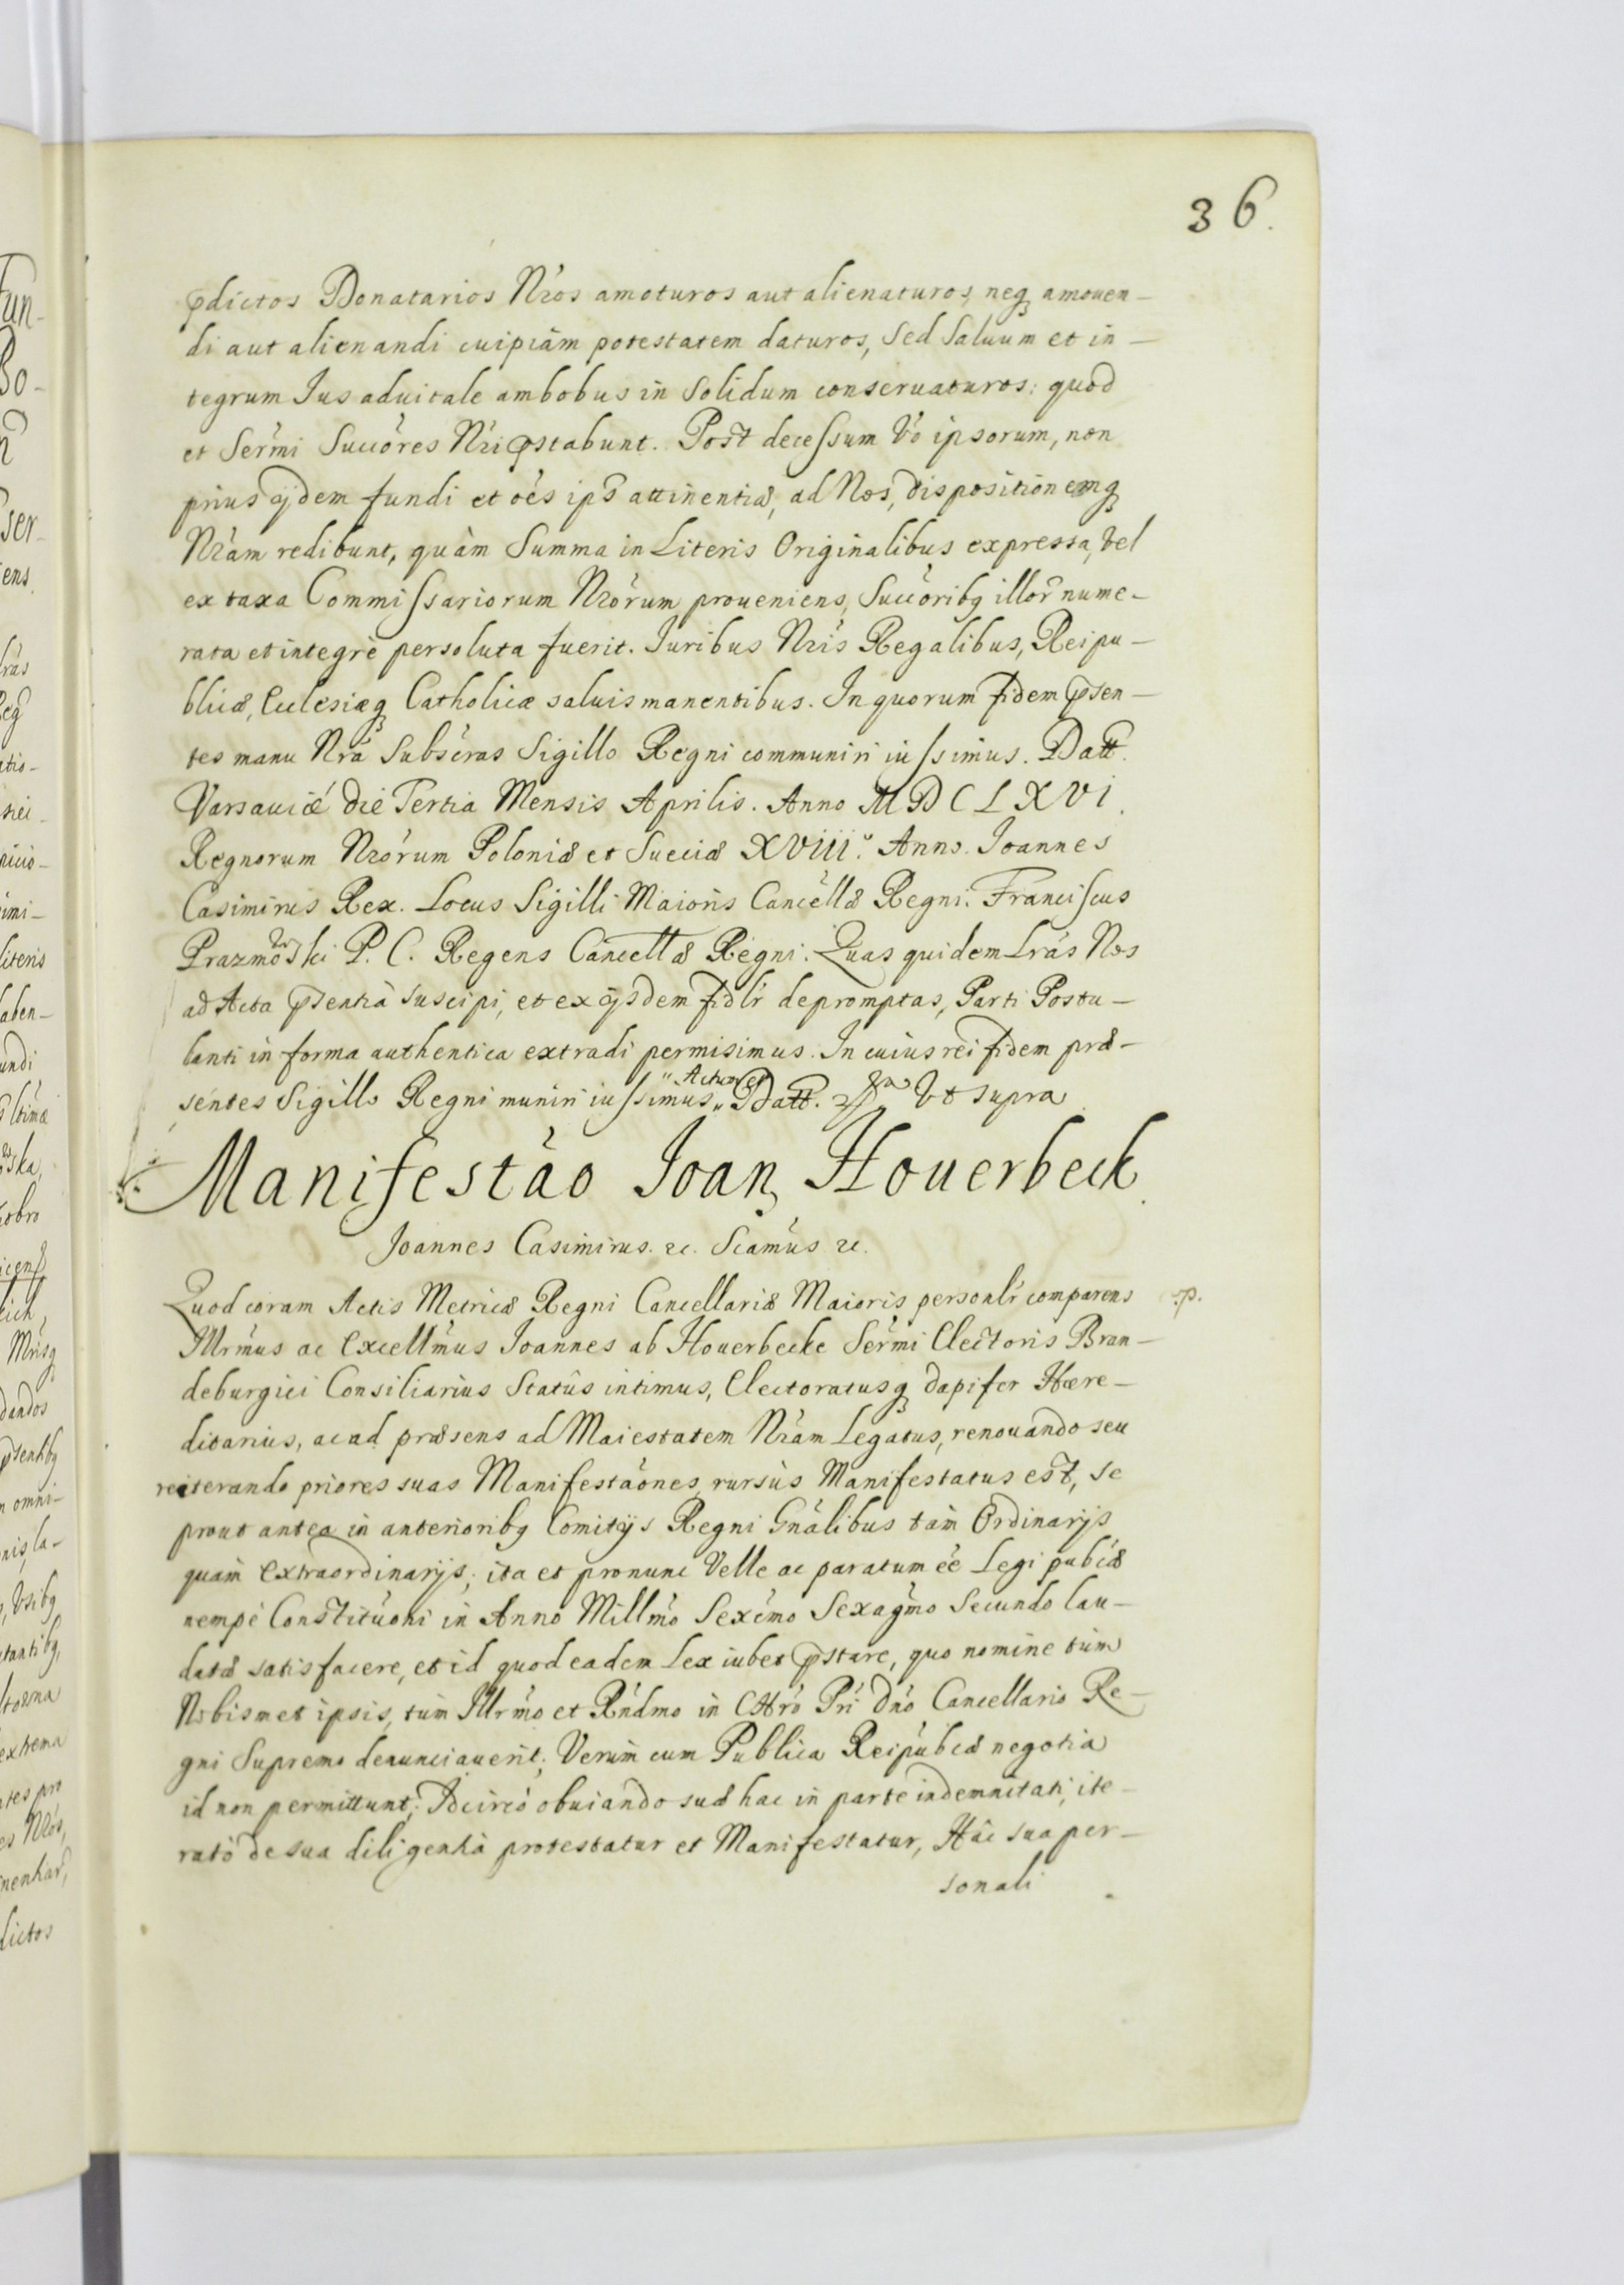 36.
p̄dictos Donatarios Nŕos amoturos aut alienaturos, neq amouen-
di aut alienandi cuipiam potestatem daturos, Sed Saluum et in-
tegrum Jus aduitale ambobus in Solidum conseruaturos: quod
et Serḿi Succóres Nŕi p̄stabunt. Post decessum V́o ipsorum, non
prius ijdem fundi et óes ips attinentiæ, ad Nos, dispositionemq
Nŕam redibunt, quàm Summa in Literis Originalibus expressa, vel
ex taxa Commissariorum Nŕorum proueniens, Succórib illoŕ nume-
rata et integrè persoluta fuerit. Juribus Nŕis Regalibus, Reipu-
blicæ, Ecclesiæq Catholicæ saluis manentibus. In quorum fidem p̄sen-
tes manu Nŕa Subscŕas Sigillo Regni communiri iussimus. Datt.
Varsauiæ die Tertia Mensis Aprilis. Anno MDCLXVI.
Regnorum Nŕorum Poloniæ et Sueciæ XVIII.º Anno. Joannes
Casimirus Rex. Locus Sigilli Maioris Cancellæ Regni. Franciscus
Prazmowski P. C. Regens Cancellæ Regni. Quas quidem Lrás Nos
ad Acta p̄sentia suscipi, et ex ijsdem fidlŕ depromptas, Parti Postu-
lanti in forma authentica extradi permisimus. In cuius rei fidem præ-
sentes Sigillo Regni muniri iussimus. Actum et Datt. Vt supra
Manifestáo Joan, Houerbeck
Joannes Casimirus. &c. Sćamus &c.
Quod coram Actis Metricæ Regni Cancellariæ Maioris personlŕ comparens .p.
Illrḿus ac Excellḿus Joannes ab Houerbecke Serḿi Electoris Bran-
deburgici Consiliarius Statûs intimus, Electoratusq dapifer Hære-
ditarius, ac ad præsens ad Maiestatem Nŕam Legatus, renouando seu
reiterando priores suas Manifestáones, rursùs Manifestatus est, se
prout antea in anteriorib Comitijs Regni Gńalibus tam Ordinarijs
quam extraordinarijs; ita et pronunc Velle ac paratum ée Legi pubĺæ
nempè Constitúoni in Anno Milĺmo Sexćmo Sexagḿo Secundo lau-
datæ satisfacere, et id quod eadem Lex iubet p̄stare, quo nomine tùm
Nobismet ipsis, tùm Illrḿo et Rńdmo in Chrő Prí Dńo Cancellario Re-
gni Supremo denunciauerit; Verùm cum Publica Reipubĺæ negotia
id non permittunt; Idcircò obuiando suæ hac in parte indemnitati, ite-
ratò de sua diligentia protestatur et Manifestatur, Hâc sua per-
sonali